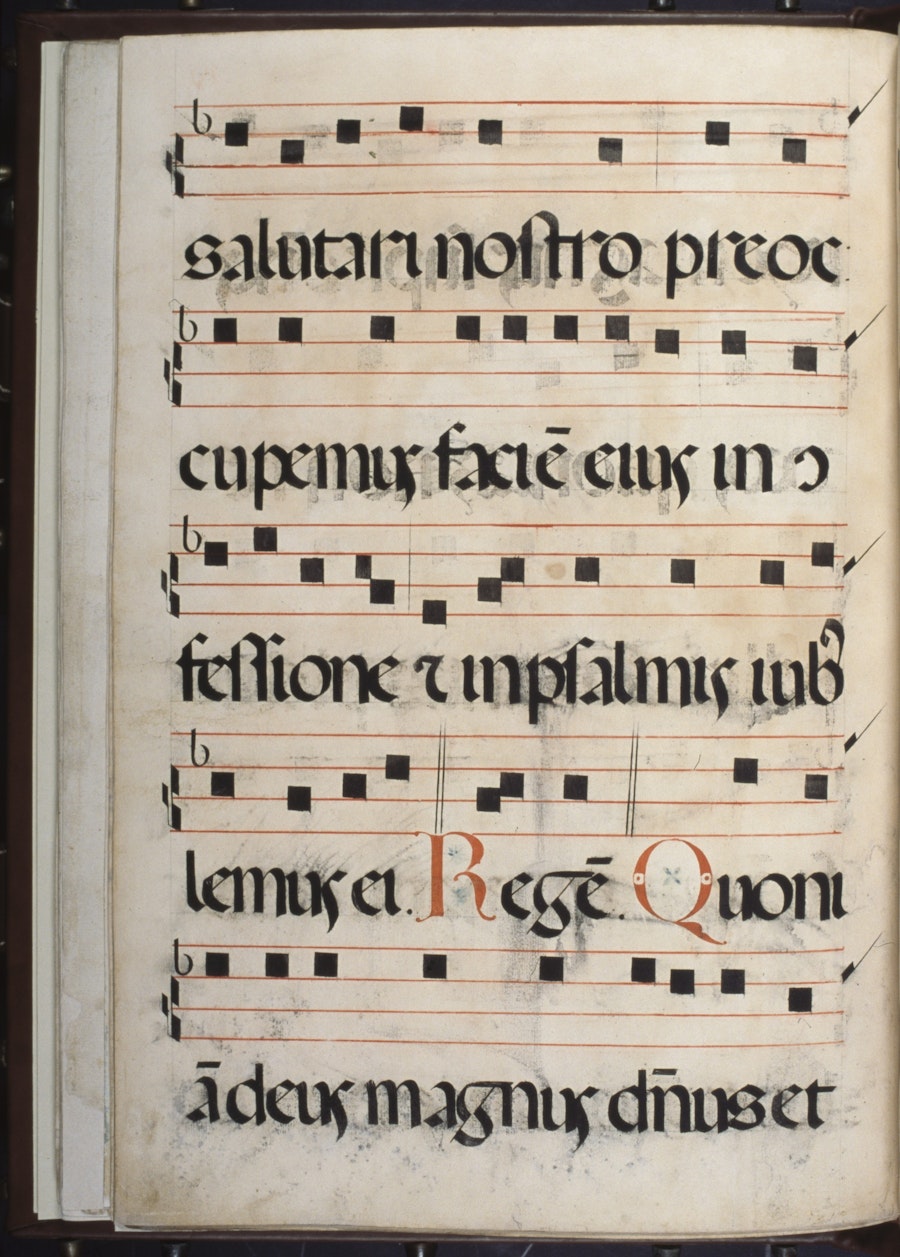 salutari nostro preoc
cupemus faciē eius in ɔ
fessione ⁊ in psalmis iubꝰ
lemus ei. Regē. Quoni
ā deus magnus dn̄us et